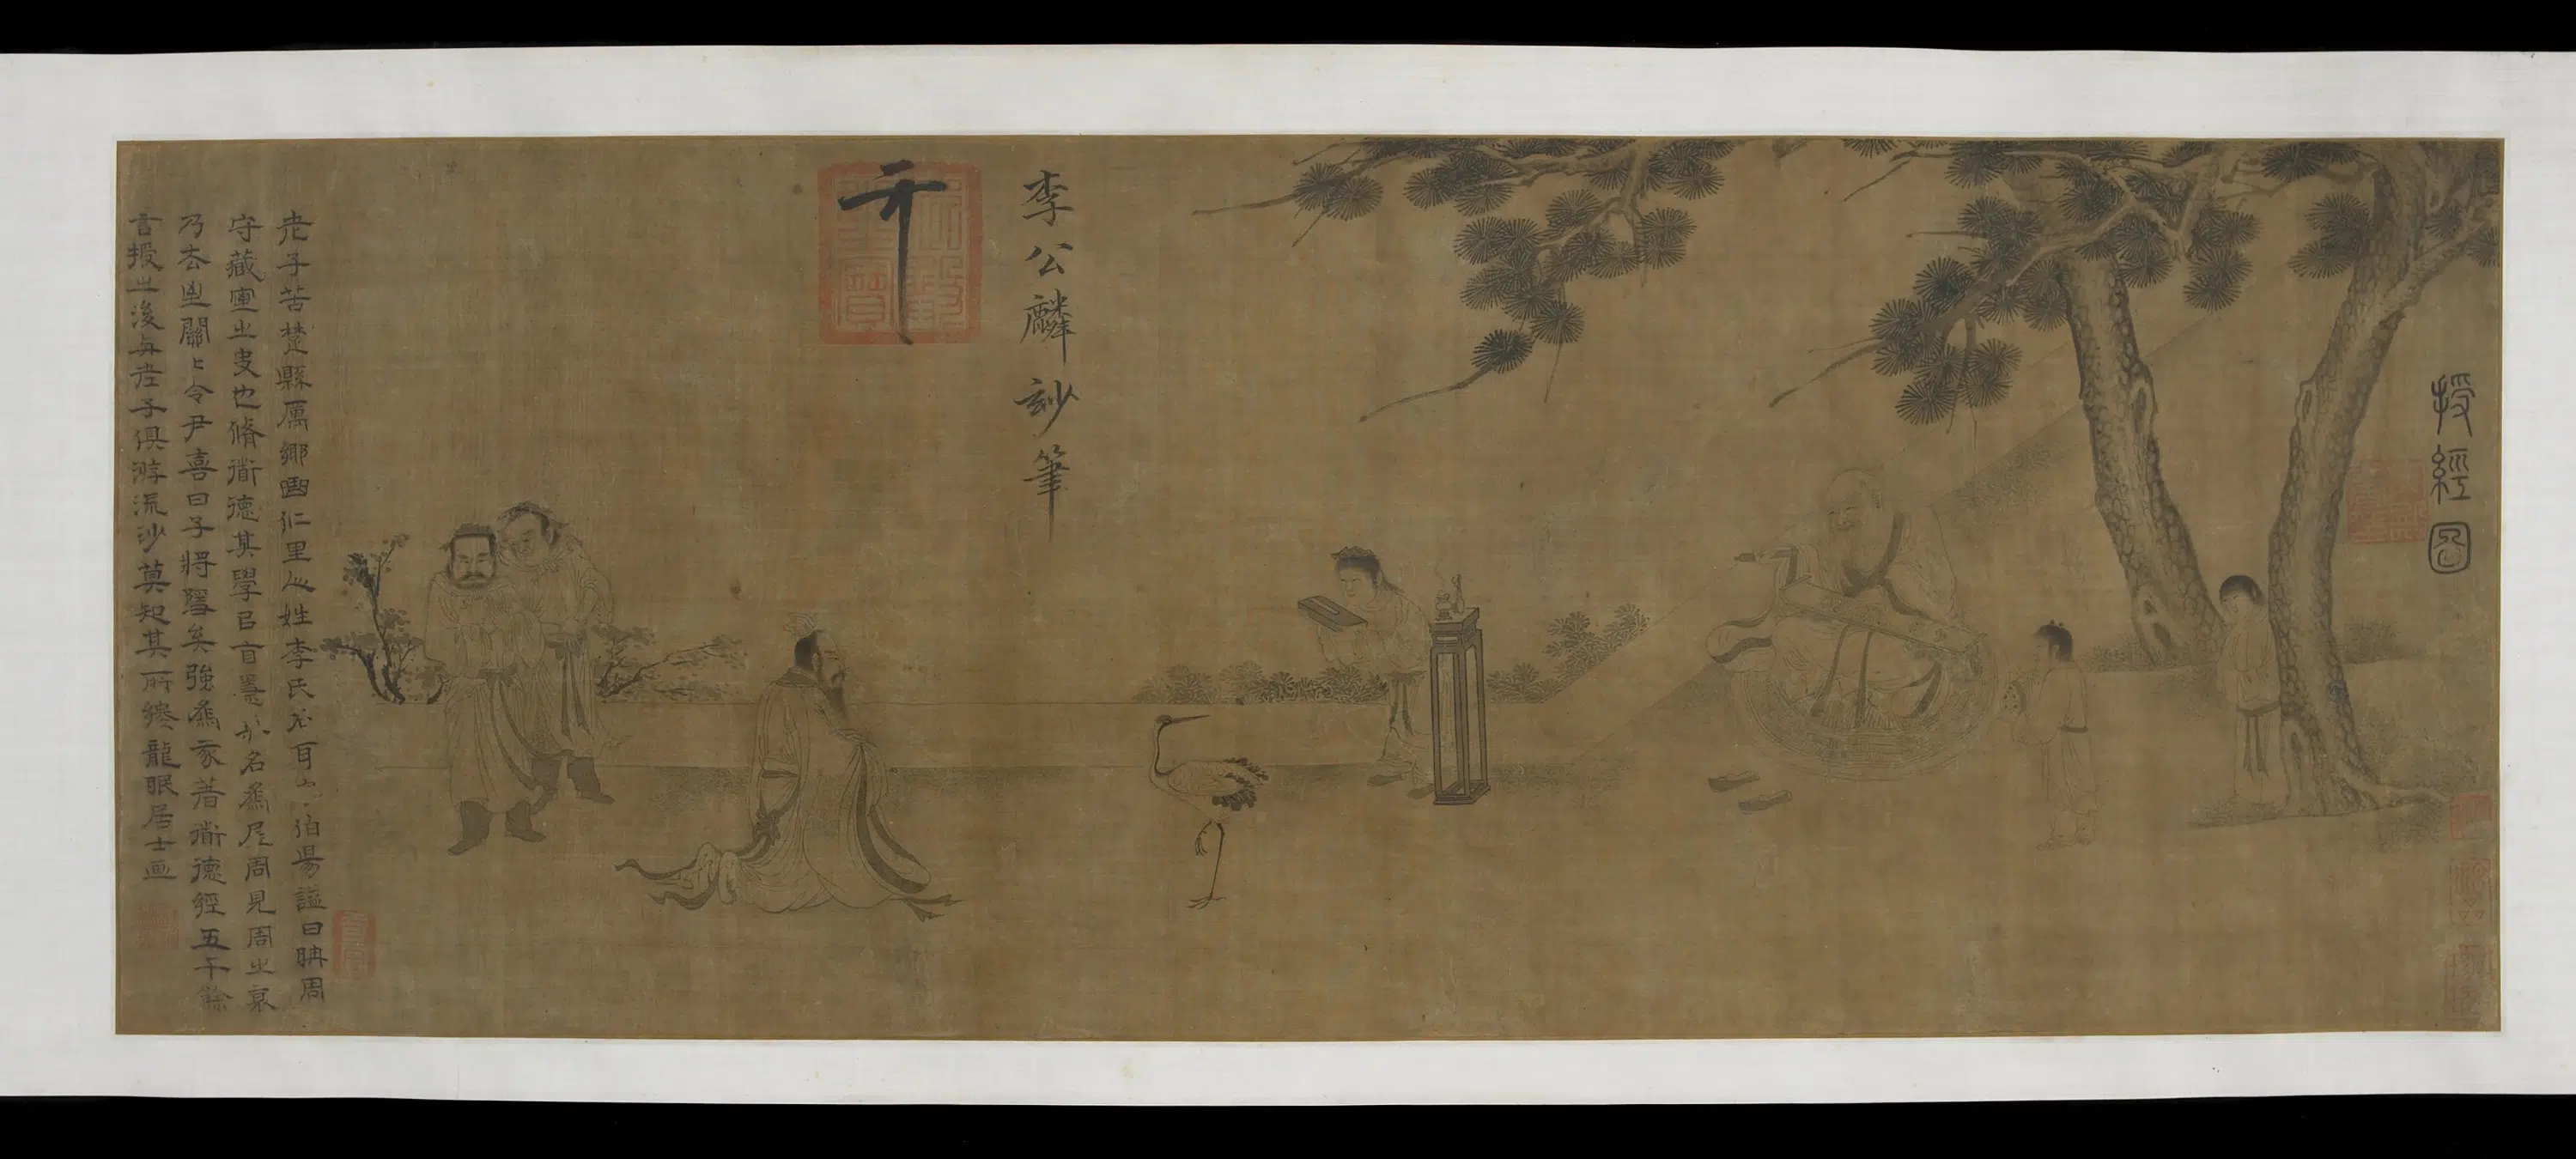 授經圖
李公麟玅筆
老子苦楚縣厲鄉曲仁里人姓李氏名耳字伯陽諡曰聃周
守藏室之吏也脩衜德其學以自隱爲名爲居周見周之衰
乃去至關〻令尹喜曰子將隱矣強爲我著衜德經五千餘
言授之後与老子俱游流沙莫知其所終龍眠居士画